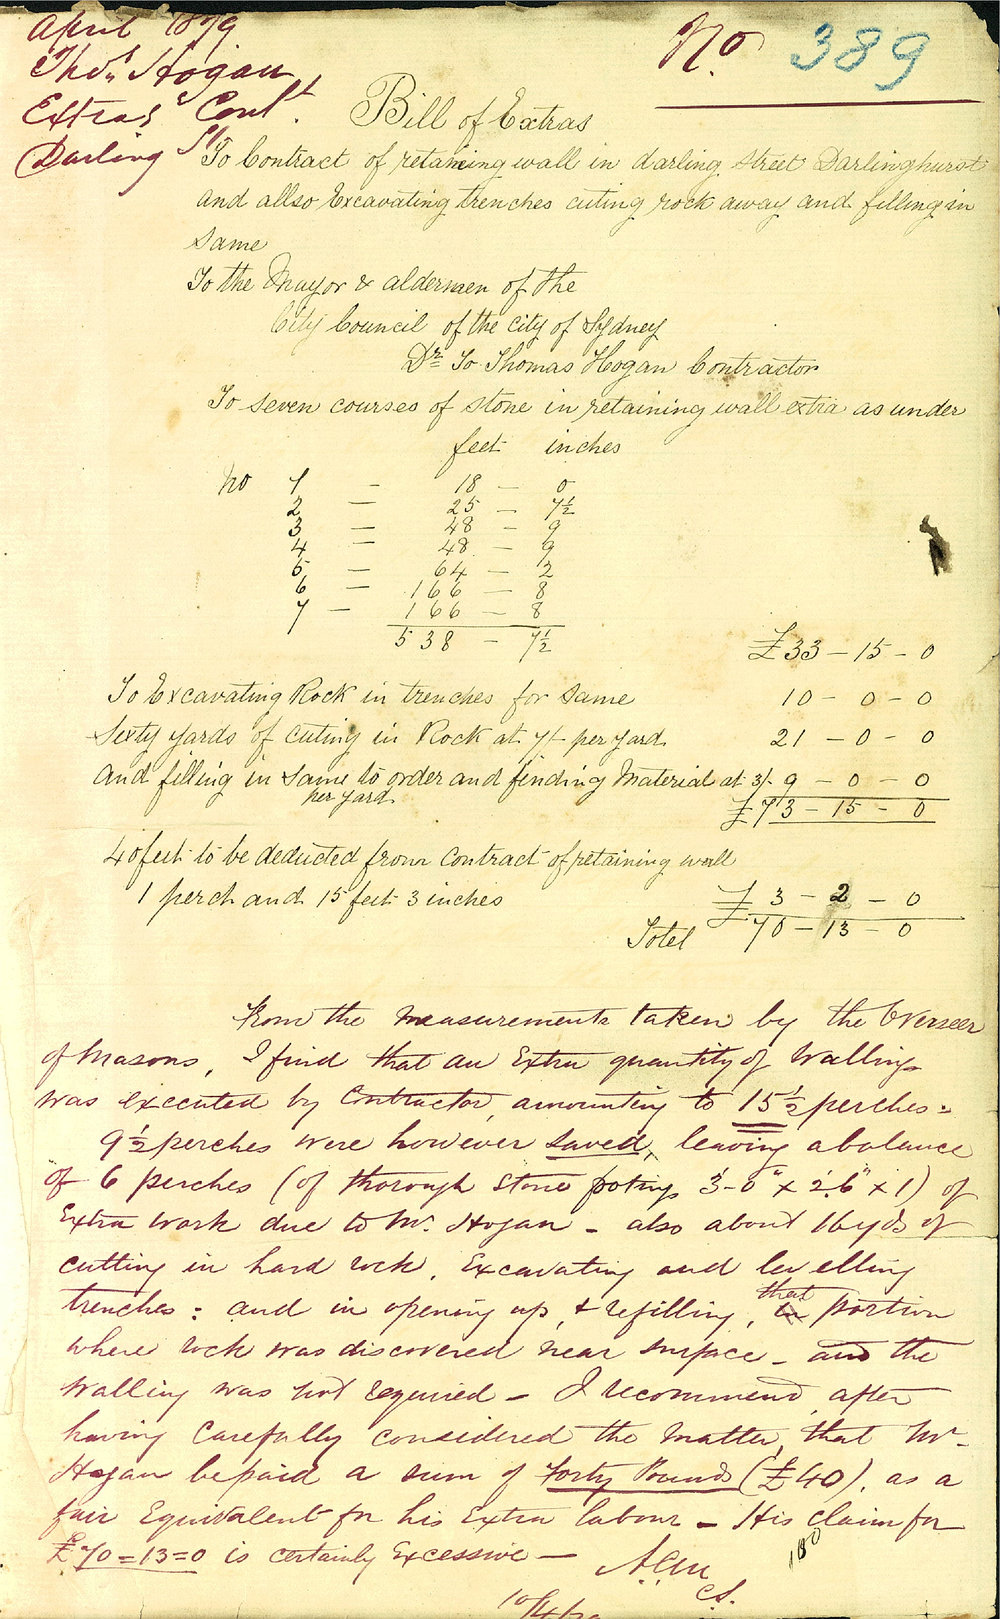 April 1879
Thos Hogan
Extras Cont.
Darling St
No. 389
Bill of Extras
To Contract of retaining wall in darling street Darlinghurst
and allso Excavating trenches cuting rock away and filling in
same
To the Mayor & aldermen of the
City Council of the city of Sydney
Dr To Thomas Hogan Contractor
To seven courses of stone in retaining wall extra as under
feet inches
No 1 - 18 - 0
2 - 25 - 7½
3 - 48 - 9
4 - 48 - 9
5 - 64 - 2
6 - 166 - 8
7 - 166 - 8
538 - 7½
£33 - 15 - 0
To Excavating Rock in trenches for same 10 - 0 - 0
Sixty yards of cuting in Rock at 7/- per yard 21 - 0 - 0
And filling in same to order and finding Material at 3/- 9 - 0 - 0
per yard
£73 - 15 - 0
40 feet to be deducted from contract of retaining wall
1 perch and 15 feet 3 inches £3 - 2 - 0
Totel £70 - 13 - 0
From the measurements taken by the Overseer
of Masons, I find that an Extra quantity of Walling
was executed by Contractor, amounting to 15½ perches =
9½ perches were however saved, leaving a balance
of 6 perches (of thorough stone footings 3'-0" x 2'.6" x 1) of
Extra work due to Mr. Hogan - also about 16 yds of
cutting in hard rock, Excavating and levelling
trenches : and in opening up, & refilling, that portion
where rock was discovered near surface - and the
walling was not required - I recommend, after
having Carefully considered the Matter, that Mr
Hogan be paid a sum of Forty Pounds (£40), as a
fair Equivalent for his Extra labour - His claim for
£70=13=0 is certainly Excessive -
C.S.